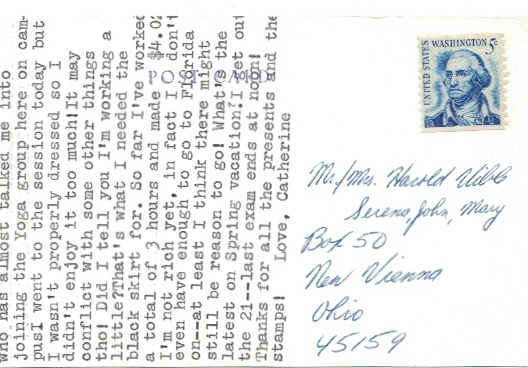 who has almost talked me into
joining the Yoga group here on cam-
pusI went to the session today but
I wasn't properly dressed so I
didn't enjoy it too much!It may
conflict with some other things
tho! Did I tell you I'm working a
little?That's what I needed the
black skirt for. So far I've worked
a total of 3 hours and made
I'm not rich yet, in fact I don't
even have enough to go to Florida
on--at least I think there might
still be reason to go! What's the
latest on Spring vacation?I get out
the 21--last exam ends at noon!
Thanks for all the presents and the
stamps! Love, Catherine
POST CARD
UNITED STATES
WASHINGTON 5¢
Mr./Mrs. Harold Vibb
Serena, John, Mary
Box 50
New Vienna
Ohio
45159